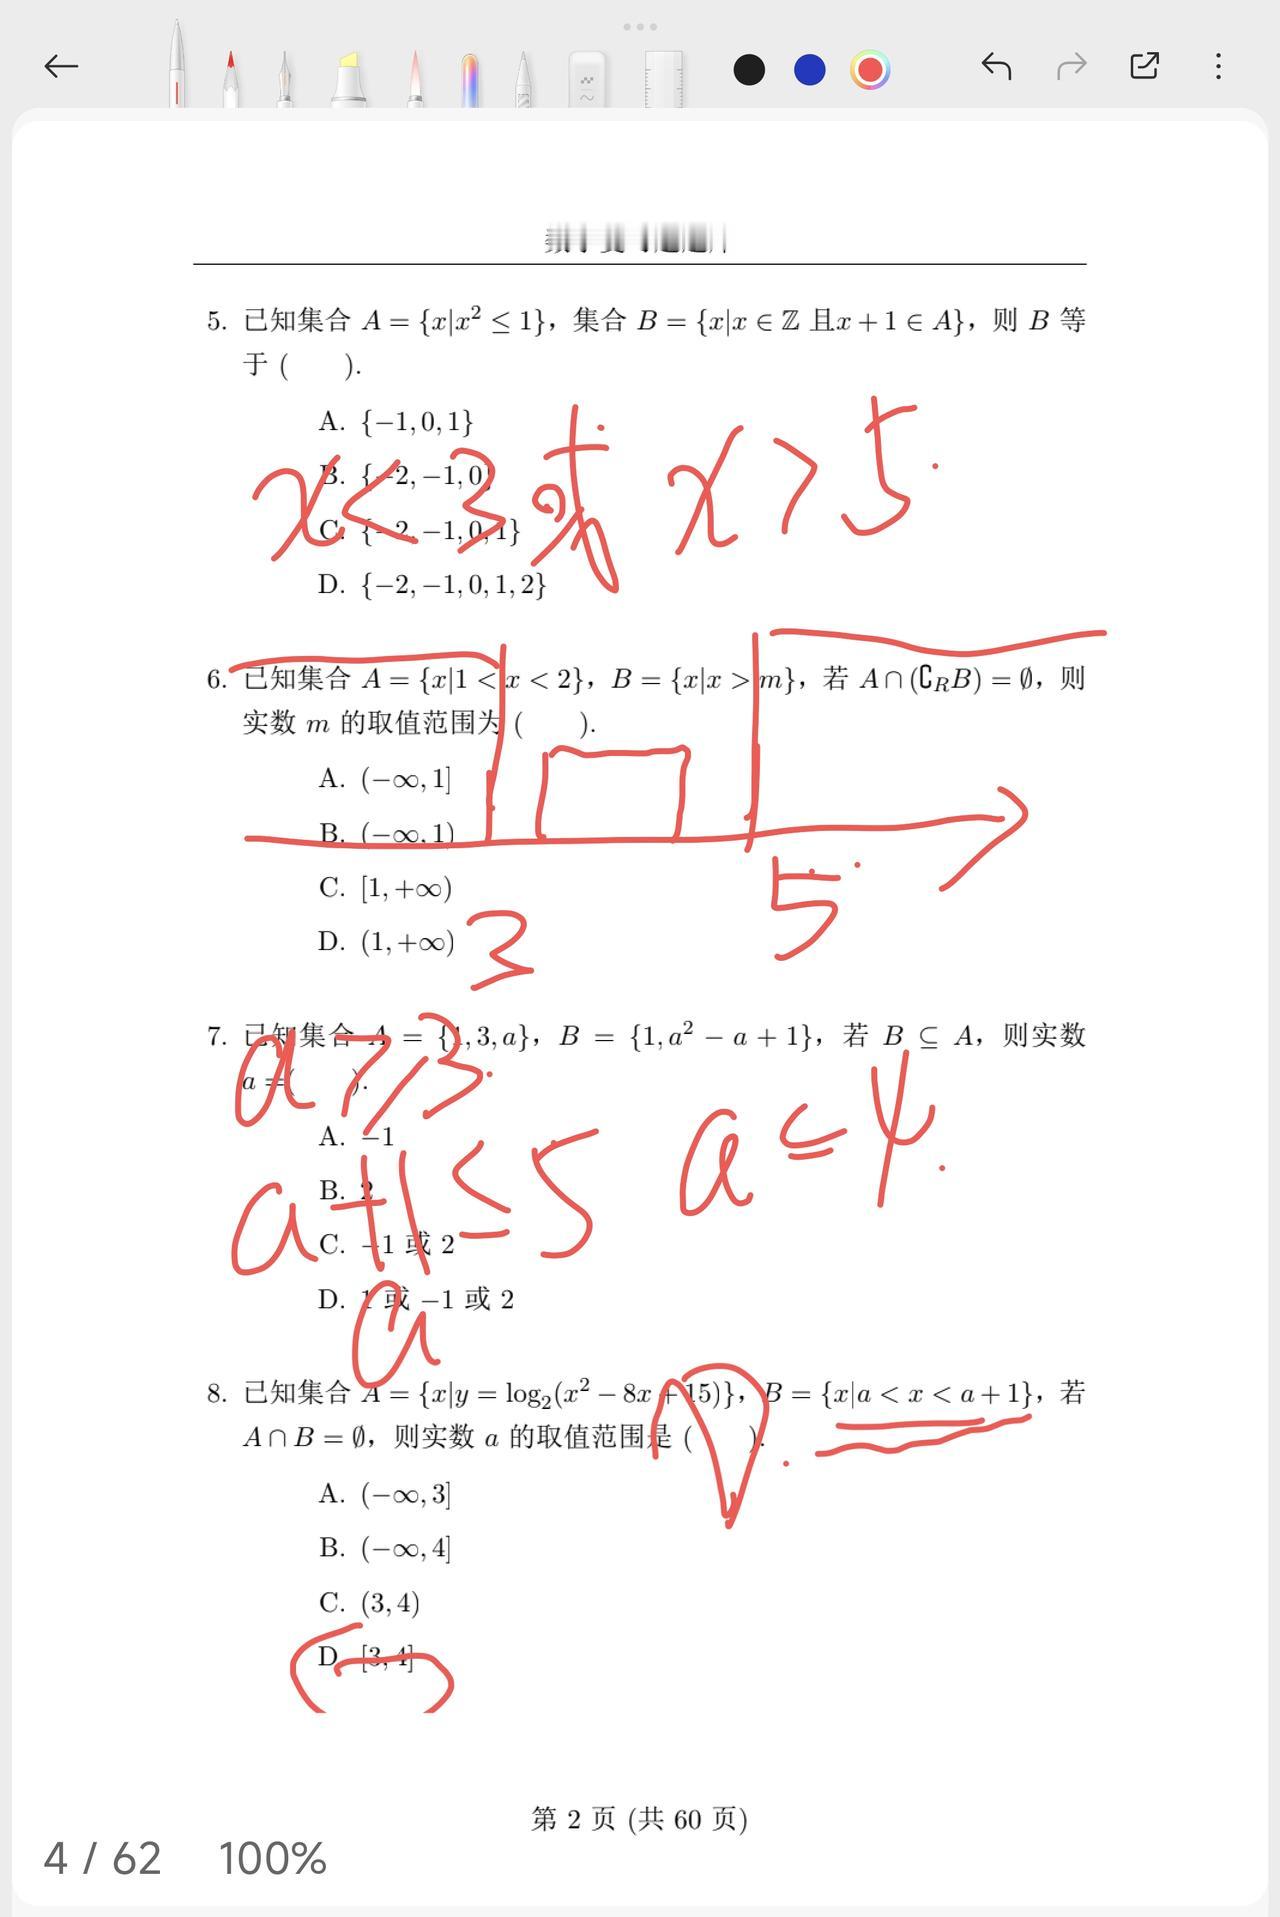 5. 已知集合 A = {x|x² ≤ 1}，集合 B = {x|x ∈ ℤ 且x + 1 ∈ A}，则 B 等
于 ( ).
A. {−1, 0, 1}
B. {−2, −1, 0}
C. {−2, −1, 0, 1}
x<3或 x>5
D. {−2, −1, 0, 1, 2}
6. 已知集合 A = {x|1 < x < 2}，B = {x|x > m}，若 A ∩ (∁RB) = ∅，则
实数 m 的取值范围为 ( ).
A. (−∞, 1]
B. (−∞, 1)
C. [1, +∞)
5
D. (1, +∞)
3
7. 已知集合 A = {1, 3, a}，B = {1, a² − a + 1}，若 B ⊆ A，则实数
a =( ).
a≥3
A. −1
a≤4
B. 2
a+1≤5
C. −1 或 2
D. 1 或 −1 或 2
a
8. 已知集合 A = {x|y = log₂(x² − 8x + 15)}，B = {x|a < x < a + 1}，若
A ∩ B = ∅，则实数 a 的取值范围是 ( ).
A. (−∞, 3]
B. (−∞, 4]
C. (3, 4)
D. [3, 4]
第 2 页 (共 60 页)
4 / 62 100%